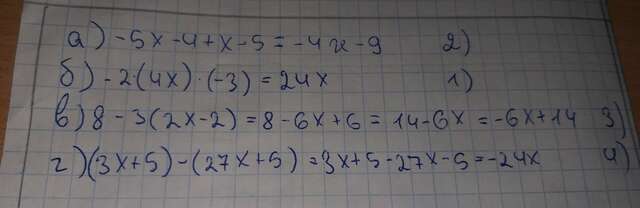 а) -5x -4 + x -5 = -4x -9 2)
б) -2·(4x)·(-3) = 24x 1)
в) 8 - 3(2x-2) = 8 - 6x + 6 = 14 - 6x = -6x + 14 3)
г) (3x+5) - (27x+5) = 3x + 5 - 27x - 5 = -24x 4)